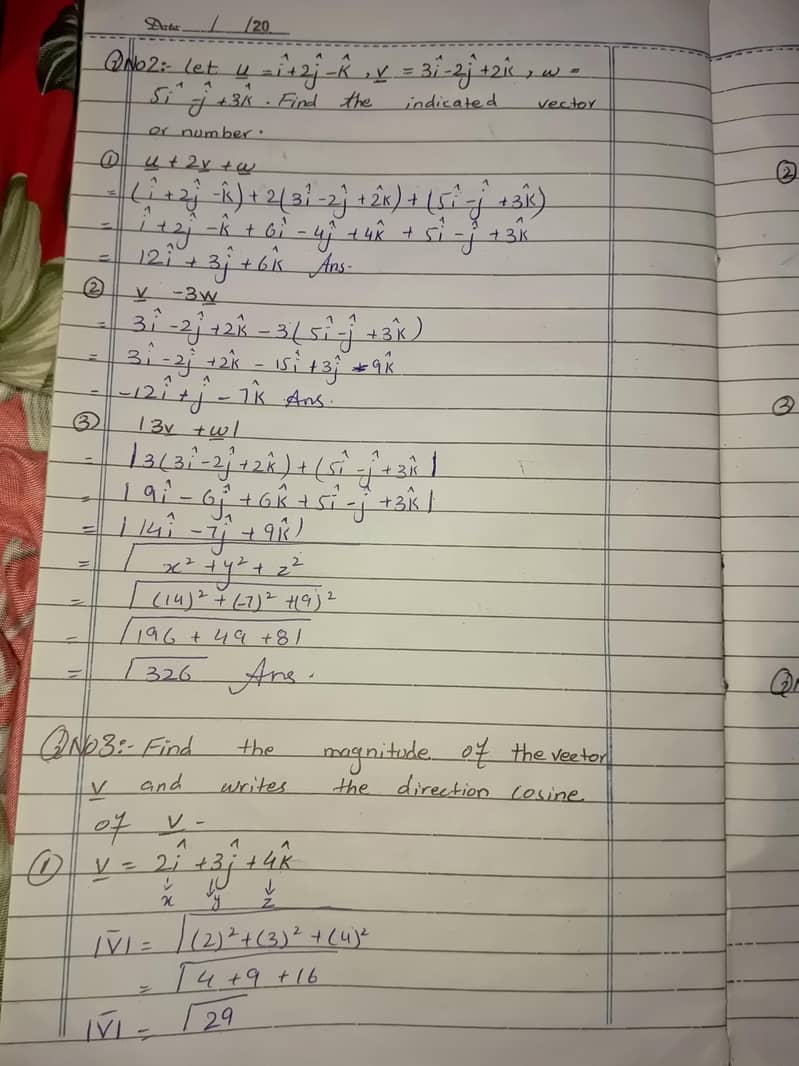 Date / /20
Q No2:- Let u = î+2ĵ-k̂, v = 3î-2ĵ+2k̂, w =
5î-ĵ+3k̂. Find the indicated vector
or number.
① u + 2v + w
= (î+2ĵ-k̂)+2(3î-2ĵ+2k̂)+(5î-ĵ+3k̂)
= î+2ĵ-k̂+6î-4ĵ+4k̂+5î-ĵ+3k̂
= 12î+3ĵ+6k̂ Ans.
② v -3w
= 3î-2ĵ+2k̂-3(5î-ĵ+3k̂)
= 3î-2ĵ+2k̂-15î+3ĵ-9k̂
= -12î+ĵ-7k̂ Ans.
③ |3v +w|
= |3(3î-2ĵ+2k̂)+(5î-ĵ+3k̂|
= |9î-6ĵ+6k̂+5î-ĵ+3k̂|
= |14î-7ĵ+9k̂)
= √x²+y²+z²
= √(14)²+(-7)²+(9)²
= √196+49+81
= √326 Ans.
Q No3:- Find the magnitude of the vector
v and writes the direction cosine
of v -
① v = 2î+3ĵ+4k̂
↓ ↓ ↓
x y z
|V̄| = √(2)²+(3)²+(4)²
= √4+9+16
|V̄| = √29
②
③
Q